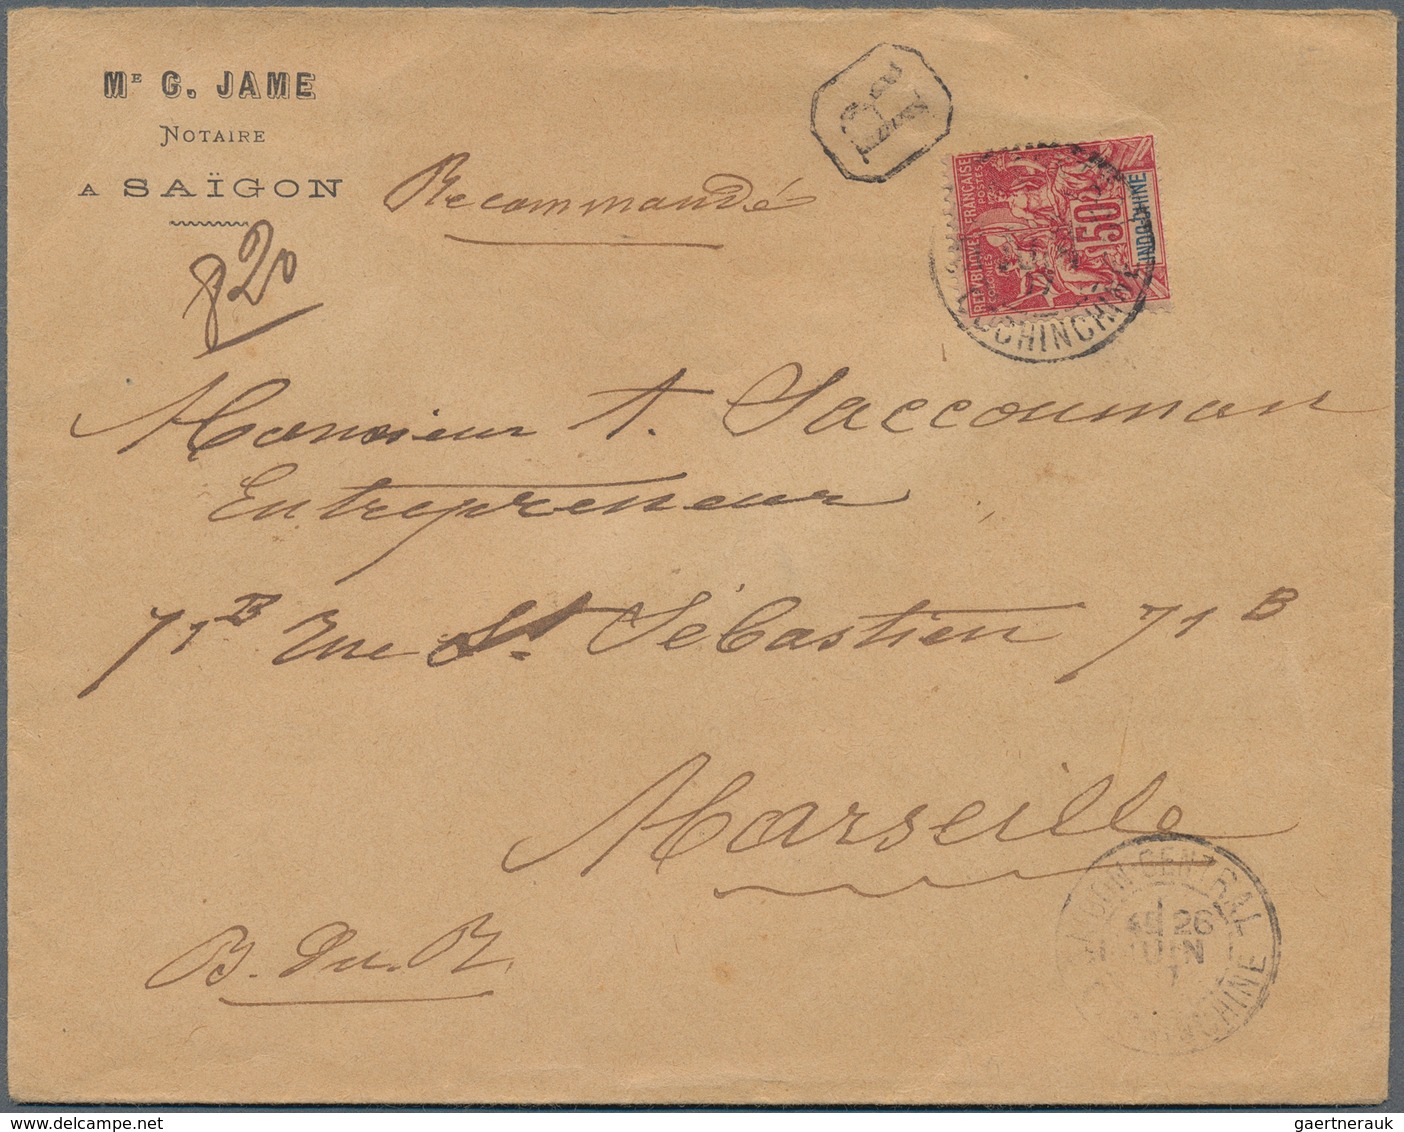 Mᴱ G. JAME
NOTAIRE
A SAÏGON
820
Recommandé
R
RÉPUBLIQUE FRANÇAISE
COLONIES POSTES
50
INDO-CHINE
COCHINCHINE
Monsieur A. Jaccouman
Entrepreneur
71ᴮ rue St. Sébastien 71 B
Marseille
B. du. R.
SAIGON CENTRAL
26
JUIN
COCHINCHINE
gaertnerauk